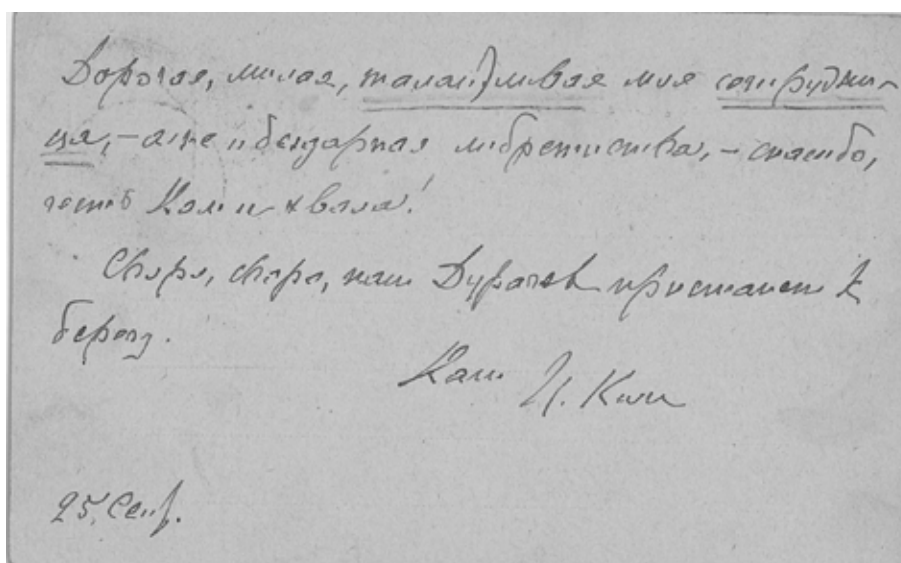 Дорогая, милая, талантливая моя сотрудни-
ца, – а не бездарная либретистка, – спасибо,
честь Вам и хвала!
Скоро, скоро, наш Дурачок пристанет к
берегу.
Ваш Ц. Кюи
25, Сент.